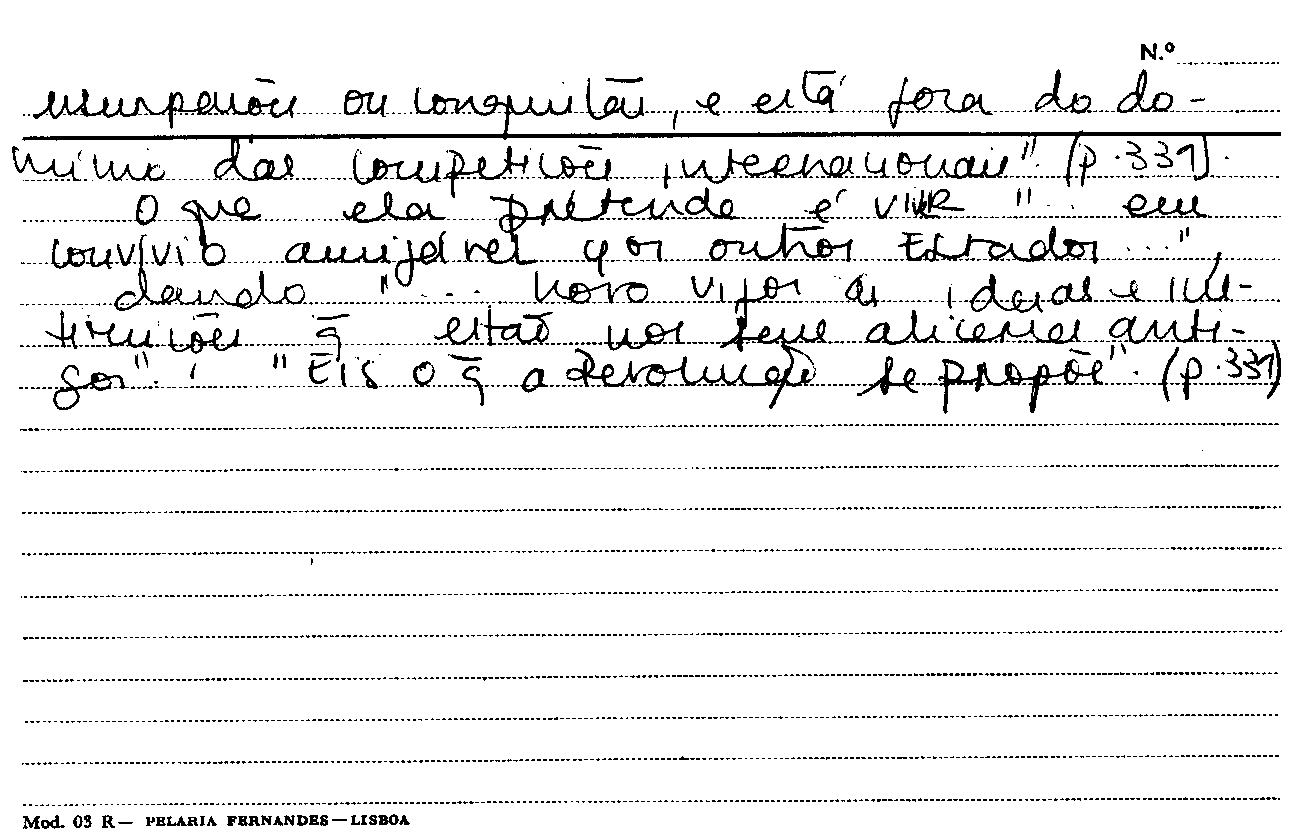 N.º
usurpações ou conquistas, e está fora do do-
mínio das competições internacionais". (p.331).
O que ela pretende é viver "... em
convívio amigável c/ os outros Estados ...",
dando "... novo vigor às ideias e ins-
tituições q̄ estão nos seus alicerces anti-
gos". "Eis o q̄ a Revolução se propõe". (p.331)
Mod. 03 R— PELARIA FERNANDES—LISBOA